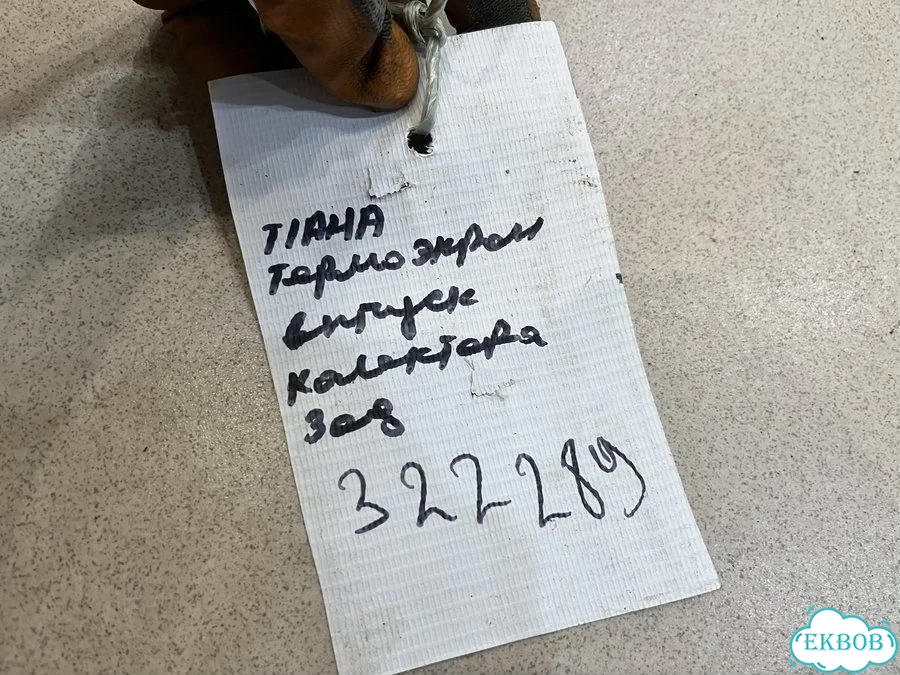 ТІАНА
термоэкран
выпуск
колектора
зад
322289
EKBOB